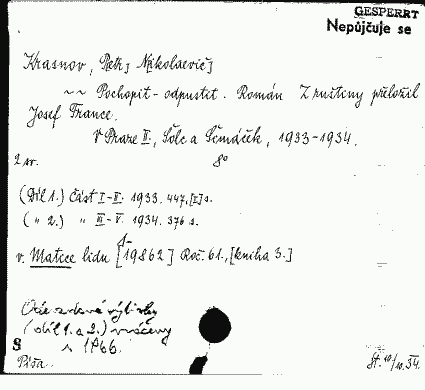 GESPERRT
Nepůjčuje se
Krasnov, Petr Nikolaevič
~~ Pochopit - odpustit. Román Z ruštiny přeložil
Josef Franc.
V Praze II., Šolc a Šimáček, 1933-1934.
2 sv. 8°
(Díl 1.) Část I-II. 1933. 447, [I] s.
( " 2.) " III-V. 1934. 376 s.
v. Matice lidu [1-19862] Roč. 61., [kniha 3.]
(díl 1. a 2.)
1966.
S
Píša. St. 10/10.34.